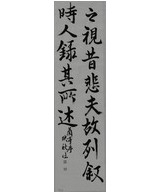 之視昔悲夫故列叙
時人錄其所述